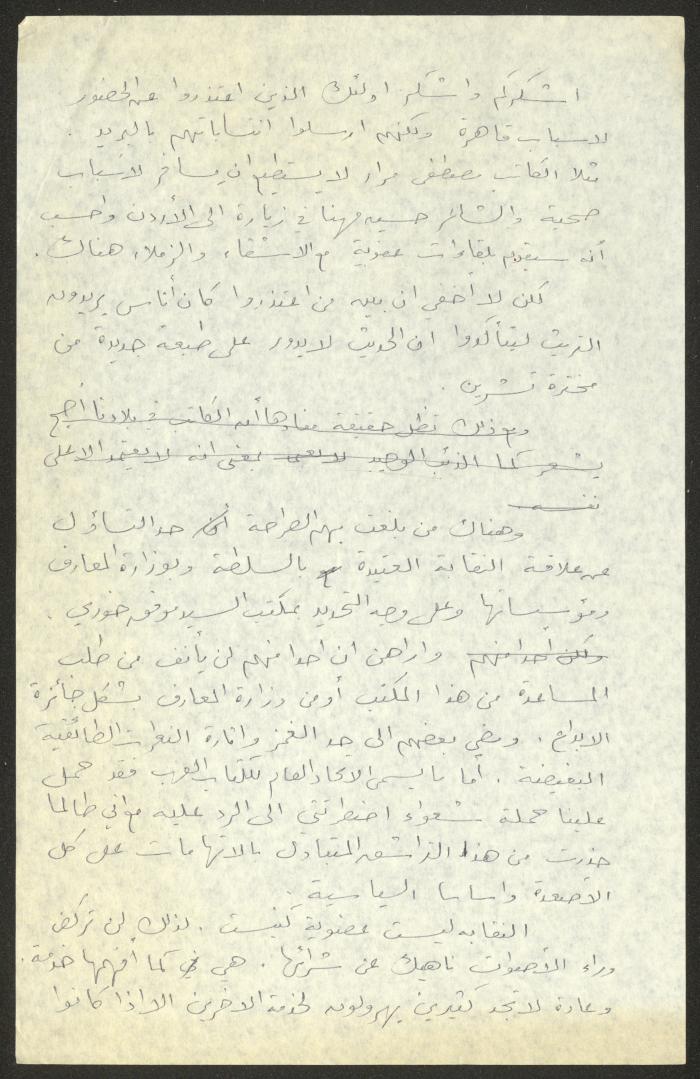 اشكركم واشكر اولئك الذين اعتذروا عن الحضور
لاسباب قاهرة ولكنهم ارسلوا انتساباتهم بالبريد .
مثلا الكاتب مصطفى مرار لا يستطيع ان يسافر لاسباب
صحية والشاعر حسين مهنا في زيارة الى الأردن واحسب
أنه سيقوم بلقاءات عفوية مع الاشقاء والزملاء هناك .
لكن لا أخفي ان بين من اعتذروا كان أناس يريدون
التريث ليتأكدوا ان الحديث لا يدور على طبعة جديدة من
مخترة تشرين .
ومع ذلك تظل حقيقة مفادها أن الكاتب في بلادنا أصبح
يشعر كما الذئب الوحيد بمعنى انه لا يعتمد الا على
نفسه
وهناك من بلغت بهم الصراحة حد التساؤل
عن علاقة النقابة العتيدة بالسلطة وبوزارة المعارف
ومؤسساتها وعلى وجه التحديد بمكتب السيد موفق خوري .
ولكن أحدا منهم واراهن ان احدا منهم لن يأنف من طلب
المساعدة من هذا المكتب أو من وزارة المعارف بشكل جائزة
الابداع . ومضى بعضهم الى حد الغمز واثارة النعرات الطائفية
البغيضة . أما ما يسمى الاتحاد العام للكتاب العرب فقد حمل
علينا حملة شعواء اضطرتني الى الرد عليه مع اني طالما
حذرت من هذا التراشق المتبادل بالاتهامات على كل
الأصعدة واساسا السياسية .
النقابة ليست عضوية كنيست . لذلك لن نركض
وراء الأصوات ناهيك عن شرائها . هي كما أفهمها خدمة .
وعادة لا تجد كثيرين يهرولون لخدمة الاخرين الا اذا كانوا